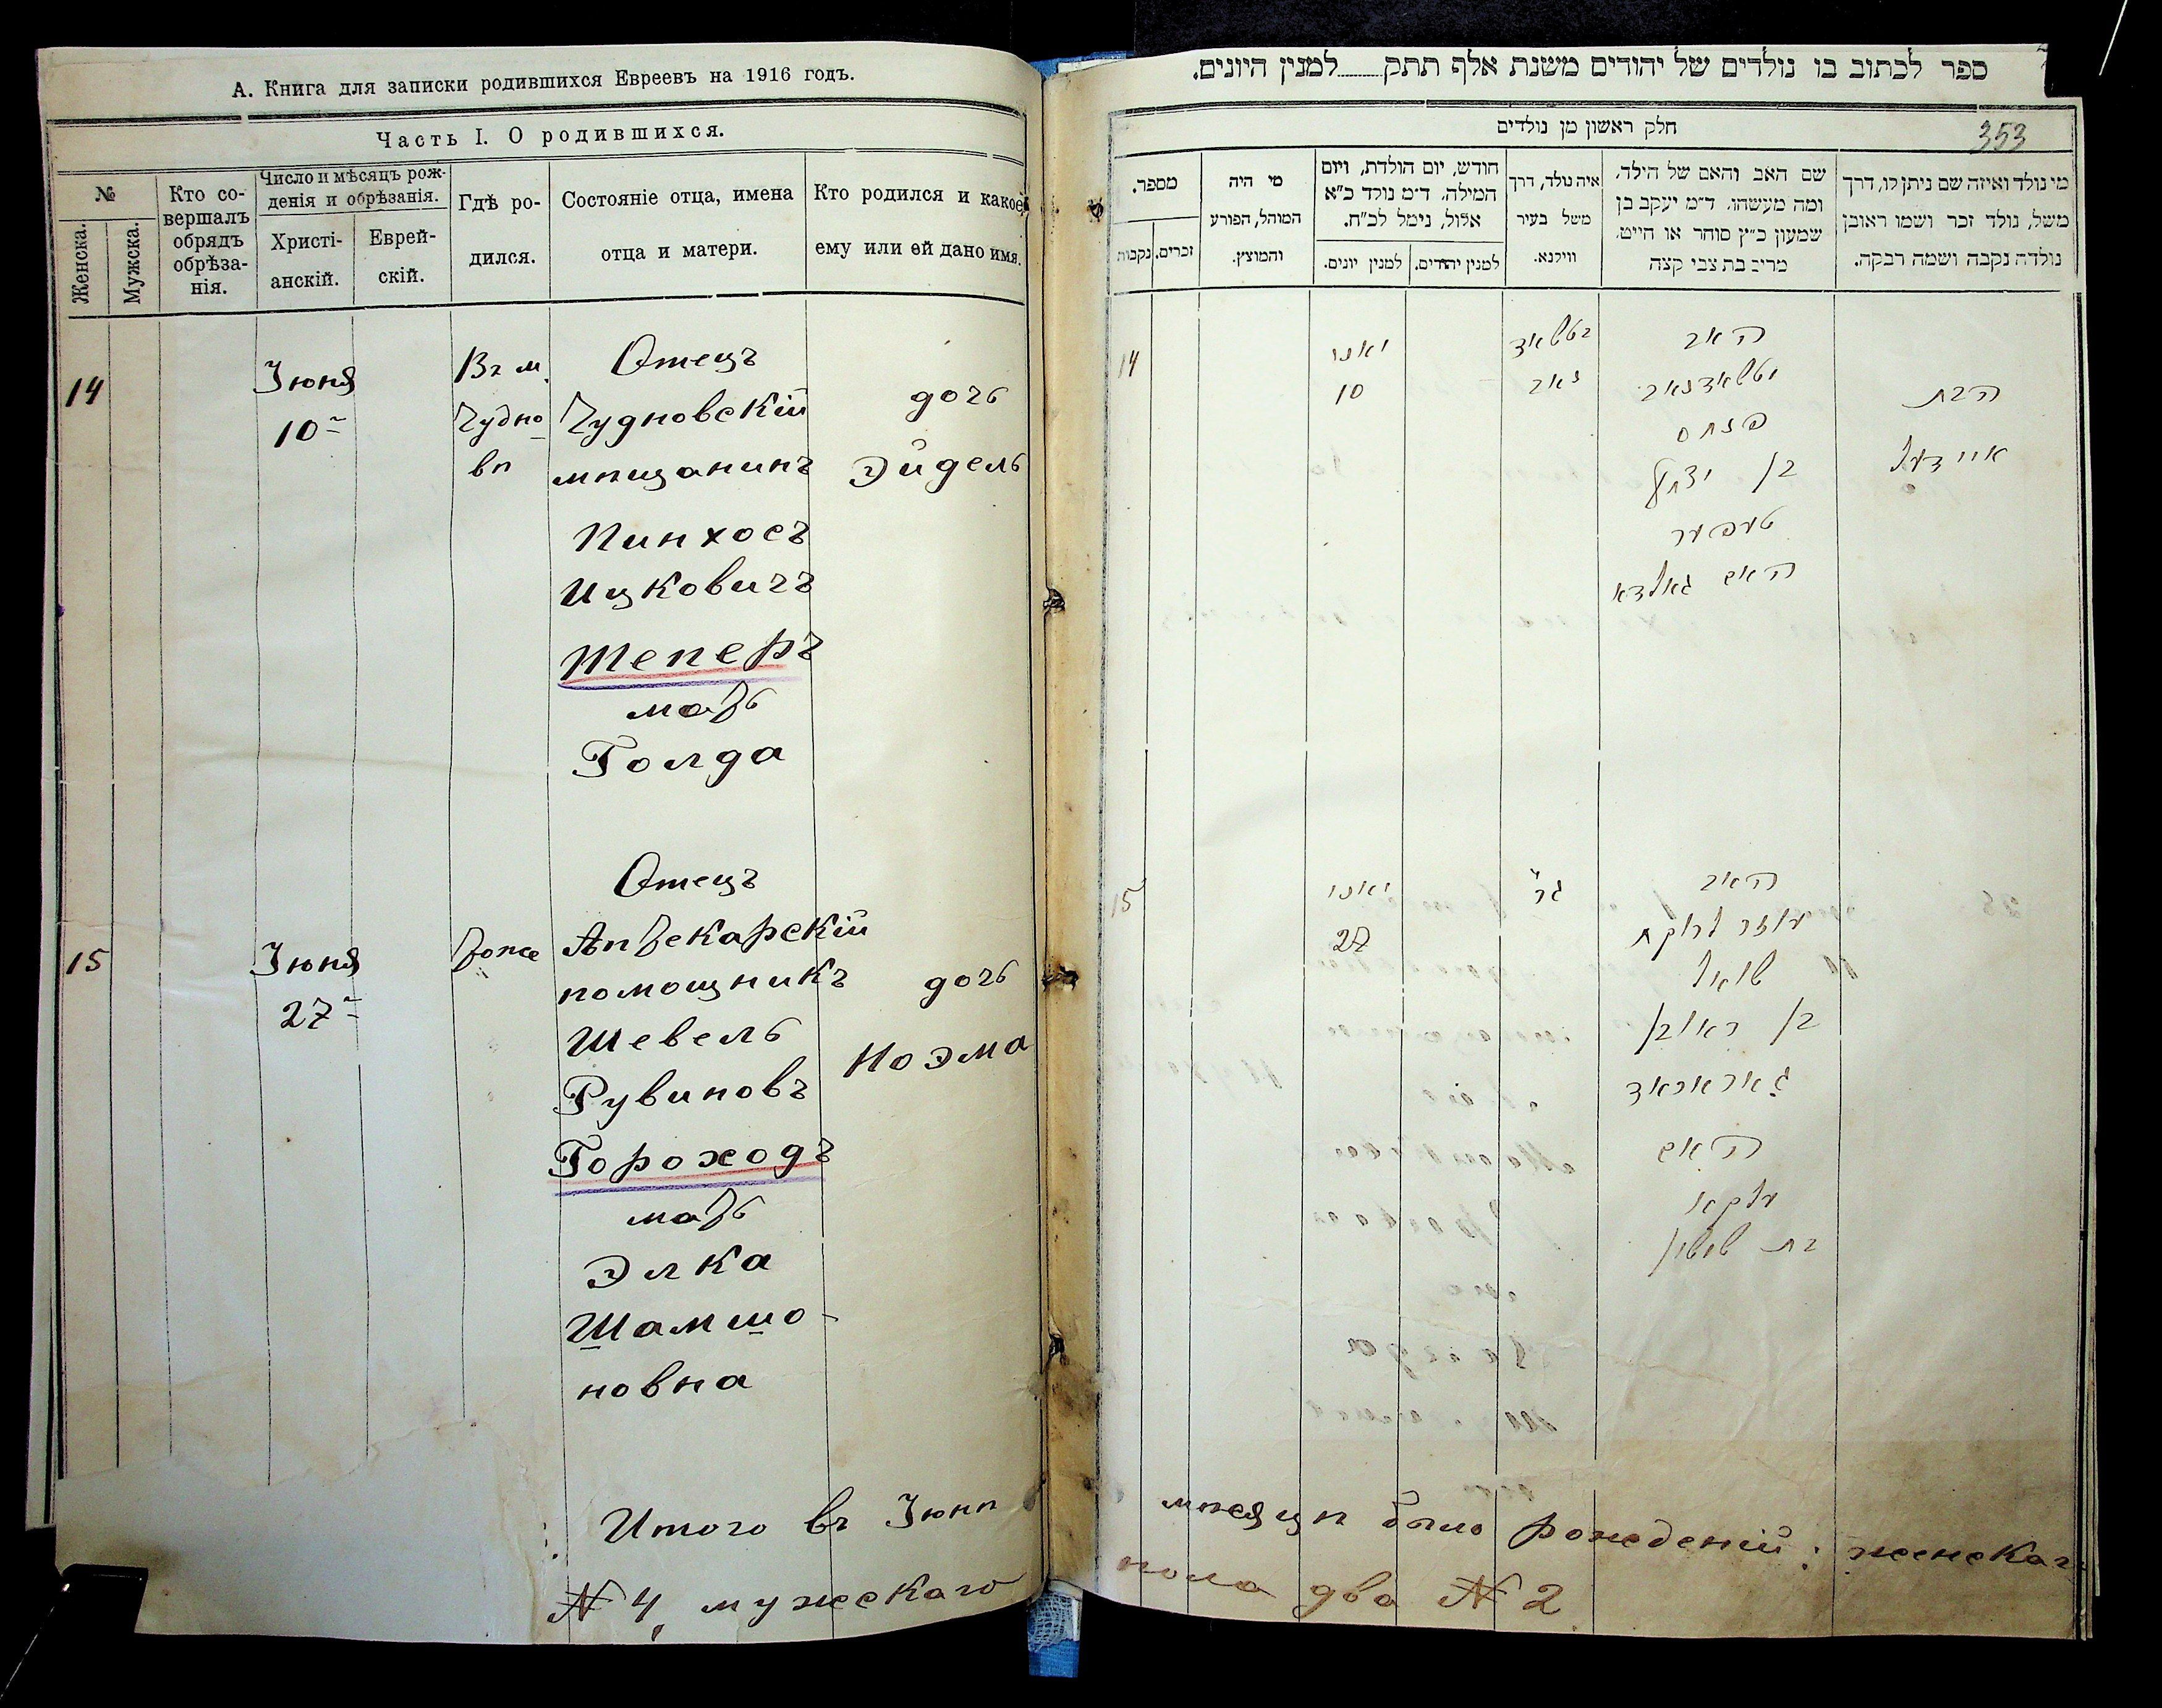 А. Книга для записки родившихся Евреевъ на 1916 годъ.
Часть I. О родившихся.
№
Женска.
Мужска.
Кто со-
вершалъ
обрядъ
обрѣза-
нія.
Число и мѣсяцъ рож-
денія и обрѣзанія.
Христі-
анскій.
Еврей-
скій.
Гдѣ ро-
дился.
Состояніе отца, имена
отца и матери.
Кто родился и какое
ему или ей дано имя.
14
Іюня
10
Въ м.
Чудно
вѣ
Отецъ
Чудновскій
мѣщанинъ
Пинхосъ
Ицковичъ
Теперъ
мать
Голда
дочь
Эйдель
15
Іюня
27
тоже
Отецъ
Аптекарскій
помощникъ
Шевель
Рувиновъ
Гороходъ
мать
Элка
Шамшо-
новна
дочь
Ноэма
Итого въ Іюнѣ
№ 4, мужскаго
ספר לכתוב בו נולדים של יהודים משנת אלף תתק למנין היונים.
353
חלק ראשון מן נולדים
מי נולד ואיזה שם ניתן לו, דרך
משל, נולד זכר ושמו ראובן
נולדה נקבה ושמה רבקה.
שם האב והאם של הילד,
ומה מעשהו. ד״מ יעקב בן
שמעון כ״ץ סוחר או חייט.
מרים בת צבי קצה
איה נולד, דרך
משל בעיר
ווילנא.
חודש, יום הולדת, ויום
המילה. ד״מ נולד כ״א
אלול, נימל לכ״ח.
למנין יהודים.
למנין יונים.
מי היה
המוהל, הפורע
והמוצץ.
מספר.
זכרים.
נקבות
14
יאנו
10
האב
פנחס
בן יצחק
טעפער
האם גאלדא
הבת
איידעל
15
יאנו
27
גר
האב
עוזר לרוקח
שואל
בן ראובן
גאראכאד
האם
עלקא
בת שמשון
мѣсяцѣ было рожденій: женскаг
пола два № 2